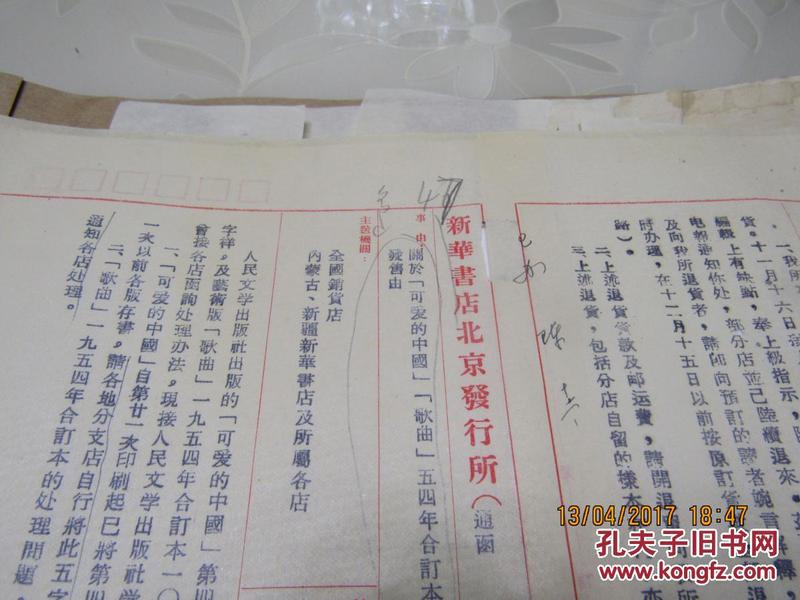 一、我所
貨。十一月十六日
編輯上有缺點，奉上級指示，
電報通知你处，部分店並已陸續退來。
及向我所退貨者，請即向預訂的讀者婉言解釋，
時办理，在十二月十五日以前按原訂貨
二、上流退貨貨款及邮运費，請開退
路）。
三、上流退貨，包括分店自留的樣本
已办
新華書店北京發行所（通函
事由：
關於「可爱的中國」「歌曲」五四年合訂本
發售由
主送機關：
全國銷貨店
內蒙古、新疆新華書店及所屬各店
人民文学出版社出版的「可爱的中國」第四
字祥。及藝術版「歌曲」一九五四年合訂本一〇
曾接各店函詢处理办法。現接人民文学出版社学
一、「可爱的中國」自第廿一次印刷起已將第四
一次以前各版存書，請各地分支店自行將此五字
二、「歌曲」一九五四年合訂本的处理問題。
通知各店处理。
13/04/2017 18:47
孔夫子旧书网
www.kongfz.com